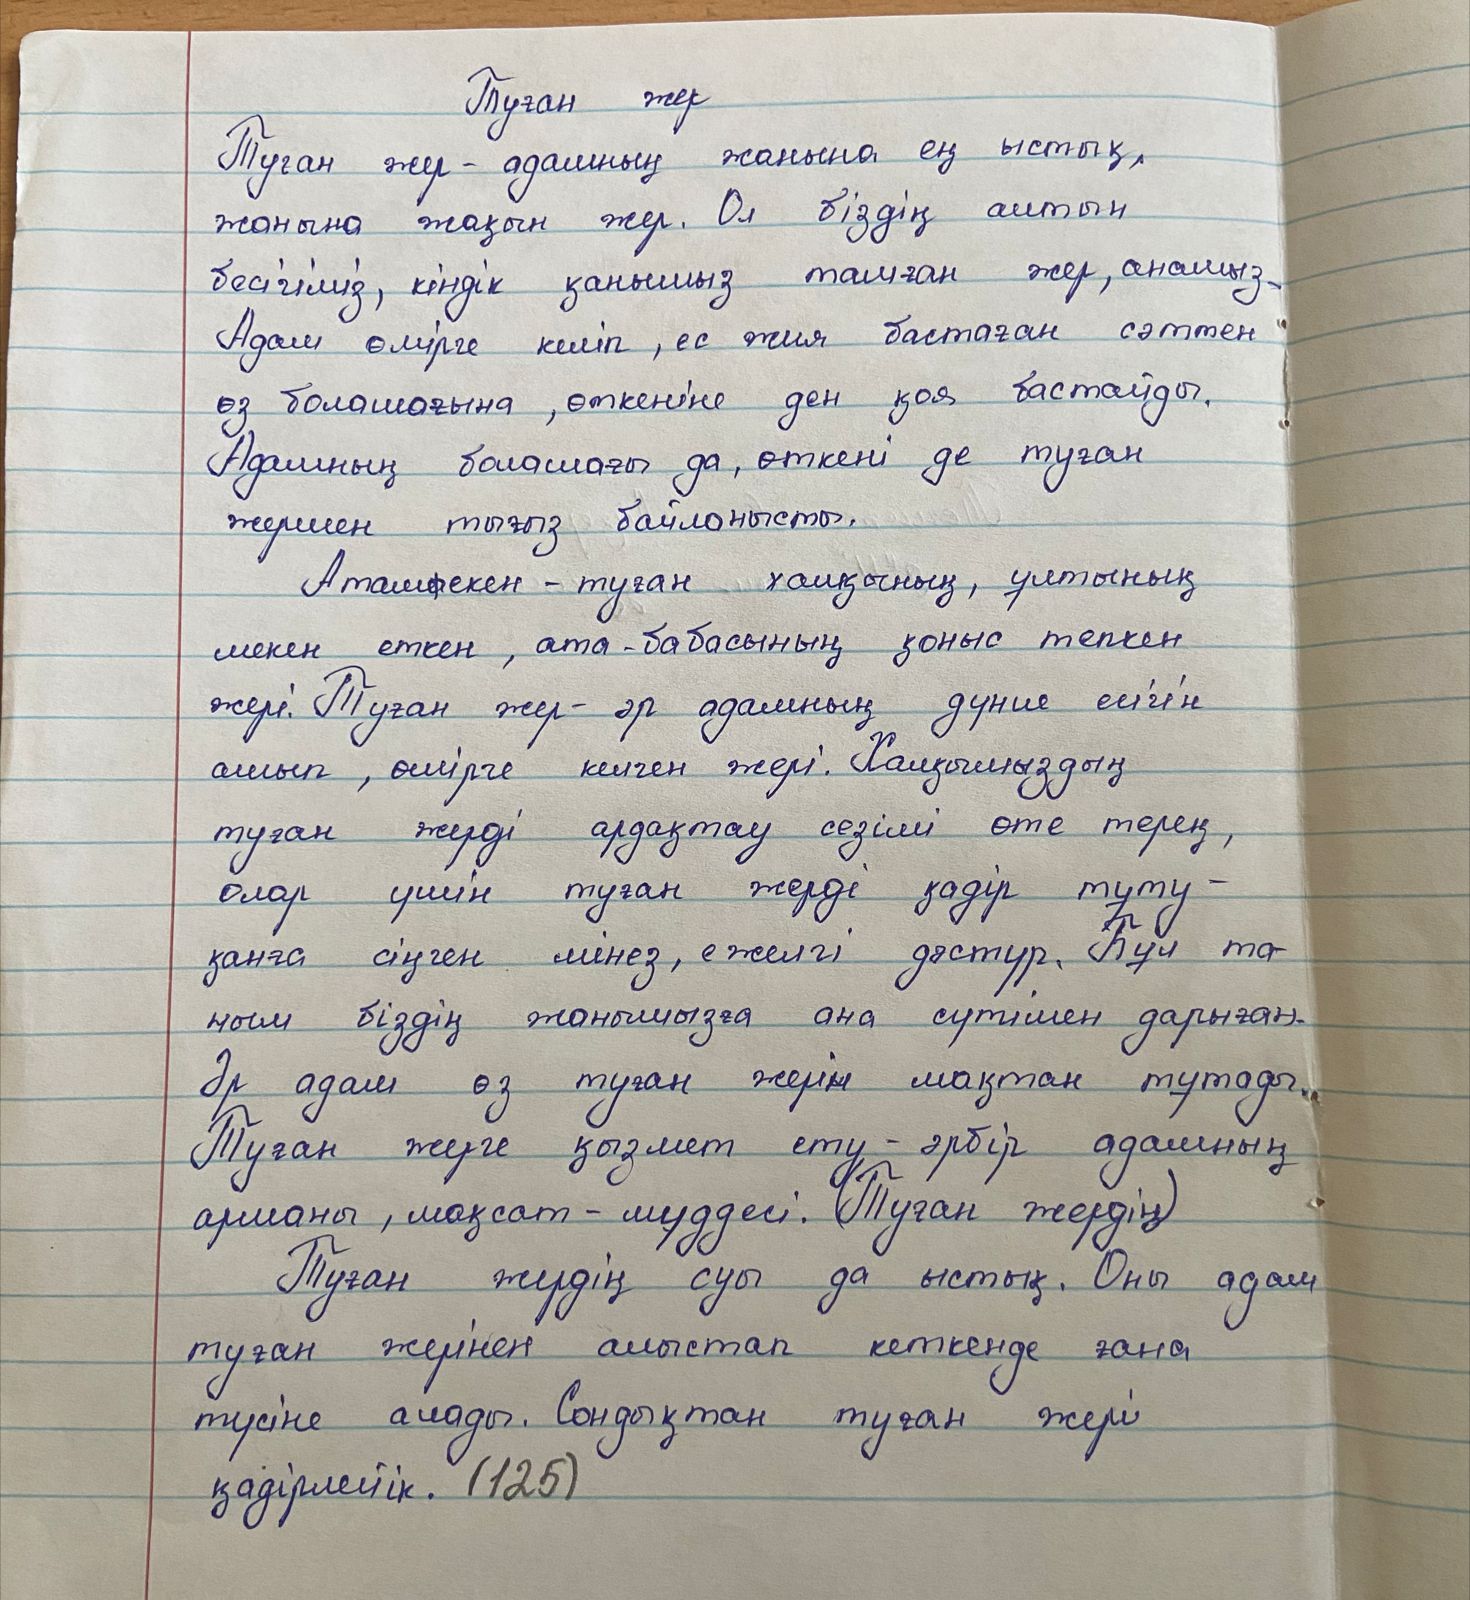 Туған жер
Туған жер - адамның жанына ең ыстық,
жанына жақын жер. Ол біздің алтын
бесігіміз, кіндік қанымыз тамған жер, анамыз.
Адам өмірге келіп, ес жия бастаған сәттен
өз болашағына, өткеніне ден қоя бастайды.
Адамның болашағы да, өткені де туған
жермен тығыз байланысты.
Атамекен - туған халқының, ұлтының
мекен еткен, ата-бабасының қоныс тепкен
жері. Туған жер - әр адамның дүние есігін
ашып, өмірге келген жері. Халқымыздың
туған жерді ардақтау сезімі өте терең,
олар үшін туған жерді қадір тұту -
қанға сіңген мінез, ежелгі дәстүр. Бұл та-
ным біздің жанымызға ана сүтімен дарыған.
Әр адам өз туған жерін мақтан тұтады.
Туған жерге қызмет ету - әрбір адамның
арманы, мақсат - мүддесі. (Туған жердің)
Туған жердің суы да ыстық. Оны адам
туған жерінен алыстап кеткенде ғана
түсіне алады. Сондықтан туған жері
қадірлейік. (125)